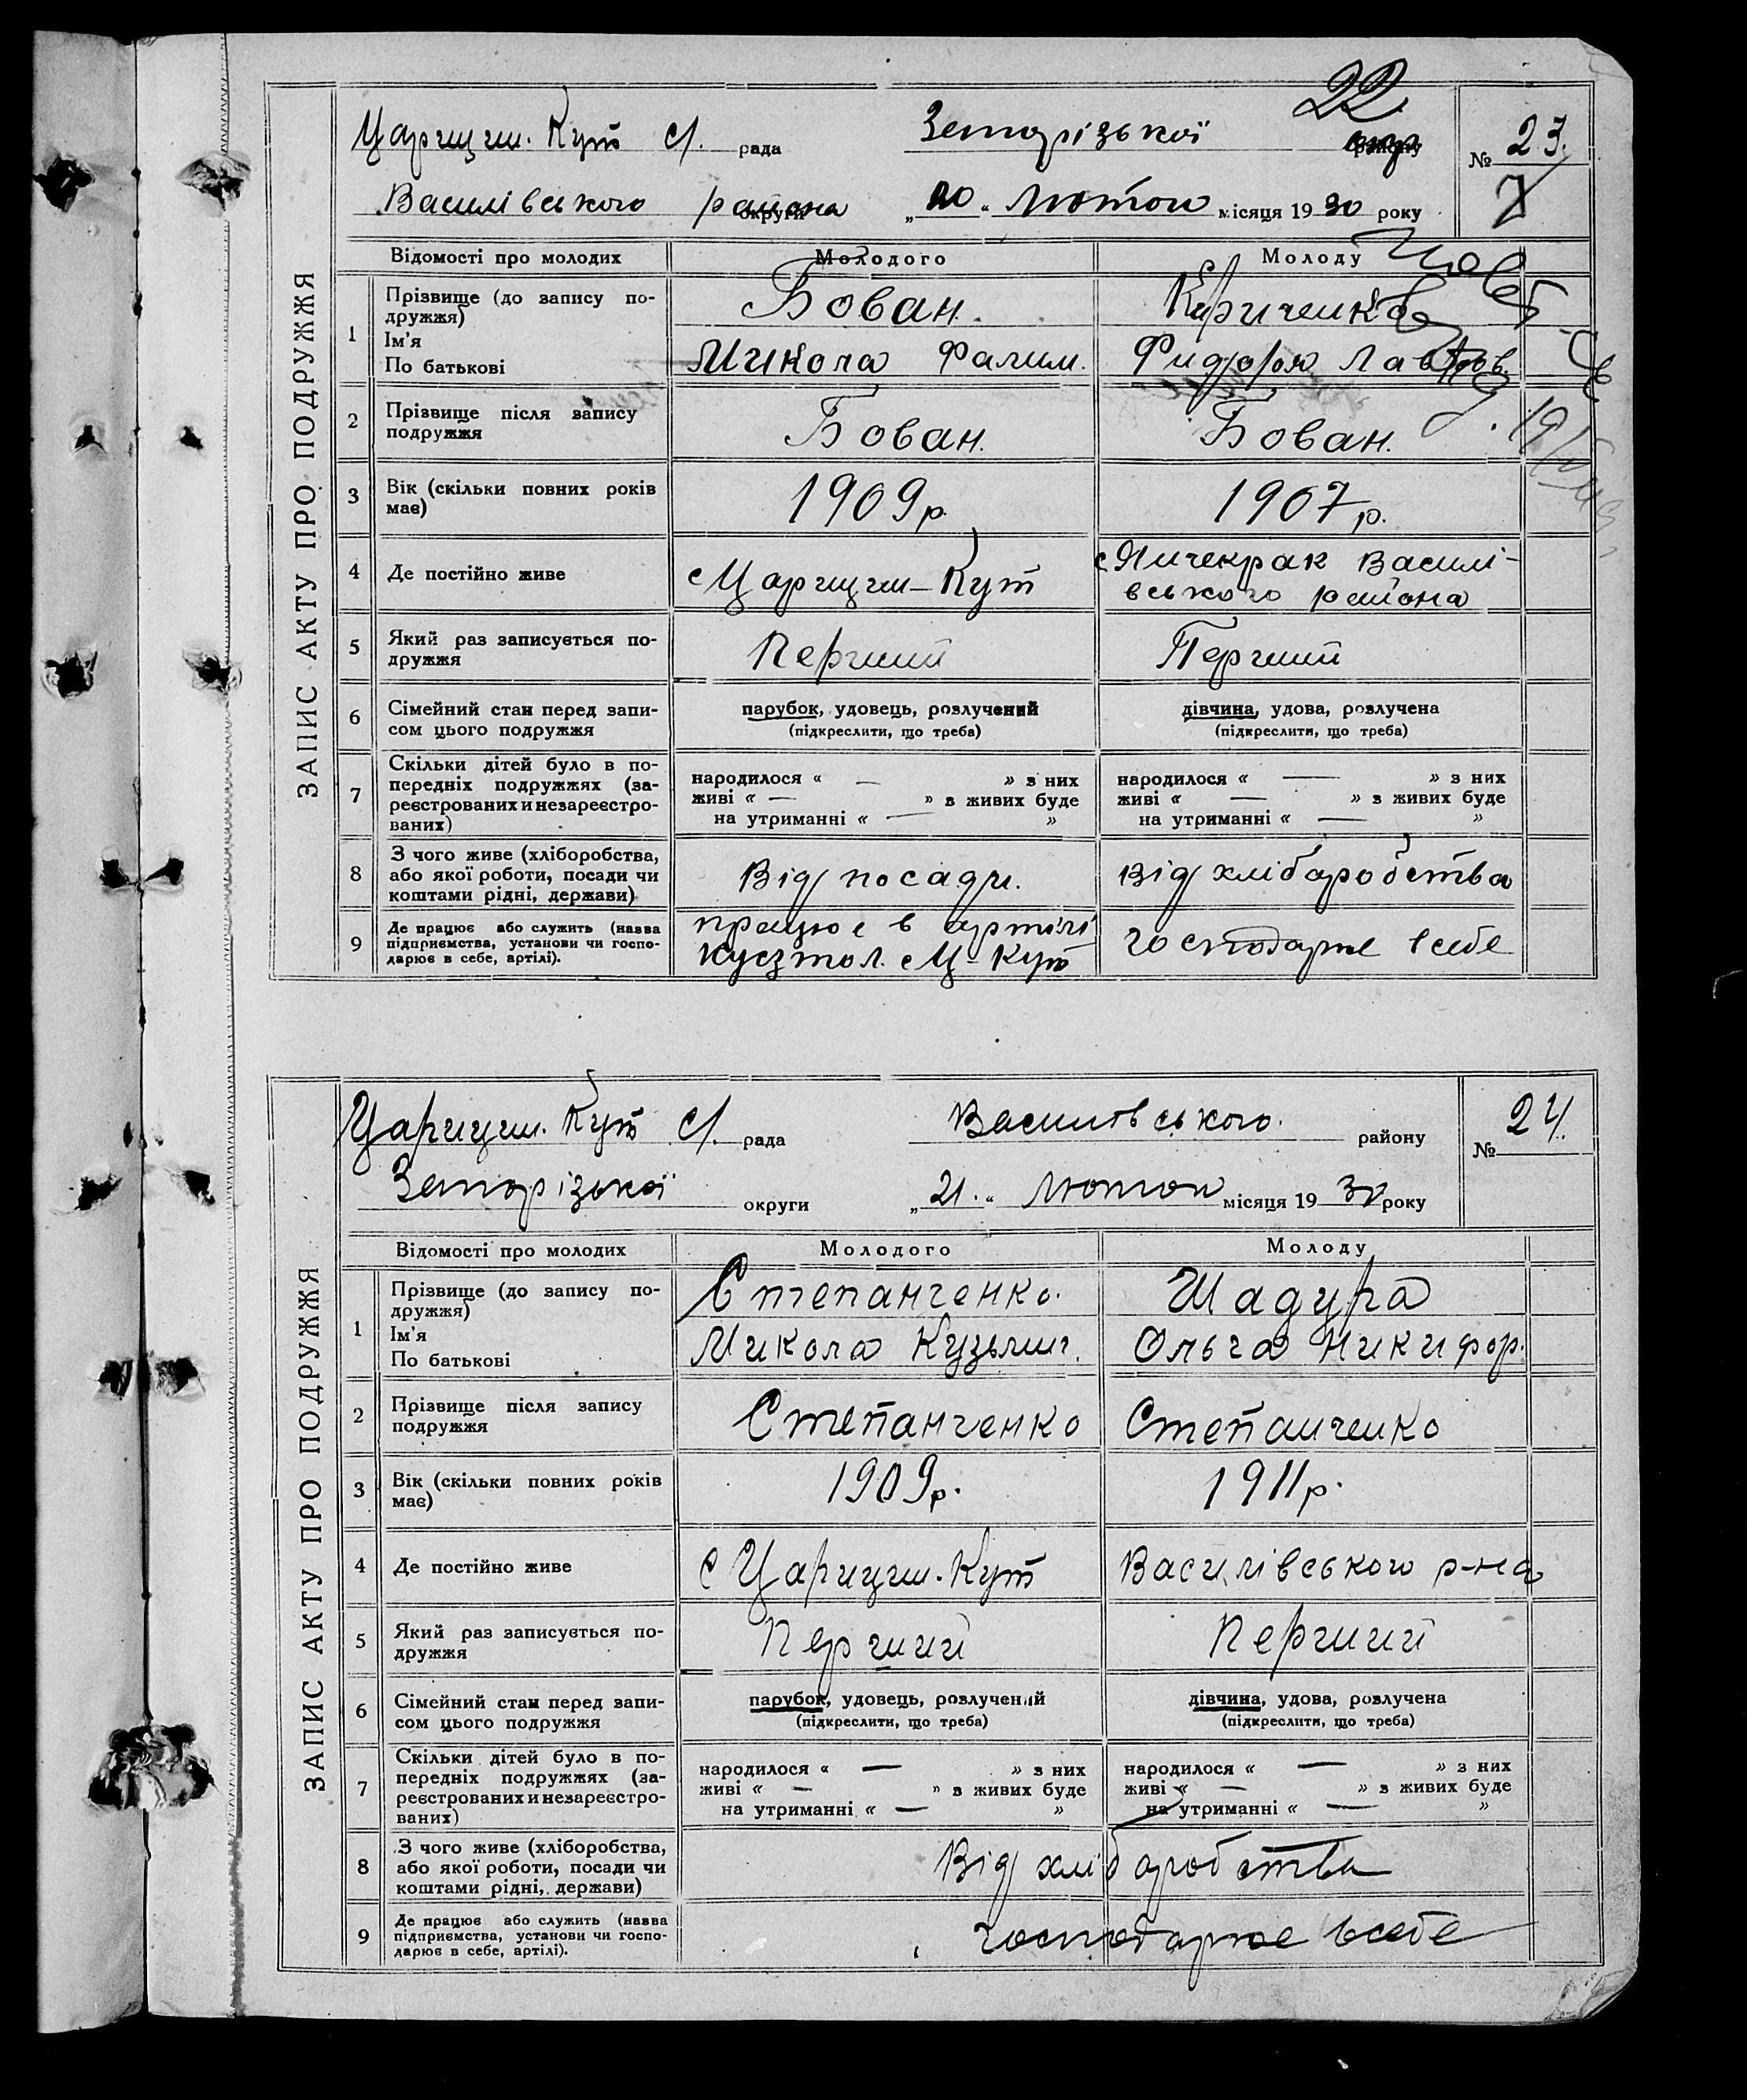 22
Царицин. Кут с/. рада Запорізької
№ 23.
7
Василівського района „20“ Лютого місяця 1930 року
ЗАПИС АКТУ ПРО ПОДРУЖЖЯ
Відомості про молодих Молодого Молоду
1 Прізвище (до запису по-
дружжя)
Бован. Кириченко
Ім'я
По батькові
Микола Фалим. Федора Лавров.
2 Прізвище після запису
подружжя
Бован. Бован.
3 Вік (скільки повних років
має)
1909р. 1907р.
4 Де постійно живе
с Царицин-Кут
с Янчекрак Василі-
вського района
5 Який раз записується по-
дружжя
Перший Перший
6 Сімейний стан перед запи-
сом цього подружжя
парубок, удовець, розлучений
(підкреслити, що треба)
дівчина, удова, розлучена
(підкреслити, що треба)
7 Скільки дітей було в по-
передніх подружжях (за-
реєстрованих и незареєстро-
ваних)
народилося « — » з них
живі « — » з живих буде
на утриманні « — »
народилося « — » з них
живі « — » з живих буде
на утриманні « — »
8 З чого живе (хліборобства,
або якої роботи, посади чи
коштами рідні, держави)
Від посади. Від хліборобства
9 Де працює або служить (назва
підприємства, установи чи госпо-
дарює в себе, артілі).
працює в артілі
с Ц-Кут
господарює в себе
Царицин. Кут с/. рада Василівського. району
№ 24.
Запорізької округи „21.“ Лютого місяця 1930 року
ЗАПИС АКТУ ПРО ПОДРУЖЖЯ
Відомості про молодих Молодого Молоду
1 Прізвище (до запису по-
дружжя)
Степанченко. Шадура
Ім'я
По батькові
Микола Кузьмич. Ольга Никифор.
2 Прізвище після запису
подружжя
Степанченко Степанченко
3 Вік (скільки повних років
має)
1909р. 1911р.
4 Де постійно живе
с Царицин.Кут Василівського р-на
5 Який раз записується по-
дружжя
Перший Перший
6 Сімейний стан перед запи-
сом цього подружжя
парубок, удовець, розлучений
(підкреслити, що треба)
дівчина, удова, розлучена
(підкреслити, що треба)
7 Скільки дітей було в по-
передніх подружжях (за-
реєстрованих и незареєстро-
ваних)
народилося « — » з них
живі « — » з живих буде
на утриманні « — »
народилося « — » з них
живі « — » з живих буде
на утриманні « — »
8 З чого живе (хліборобства,
або якої роботи, посади чи
коштами рідні, держави)
Від хліборобства
9 Де працює або служить (назва
підприємства, установи чи госпо-
дарює в себе, артілі).
господарює в себе